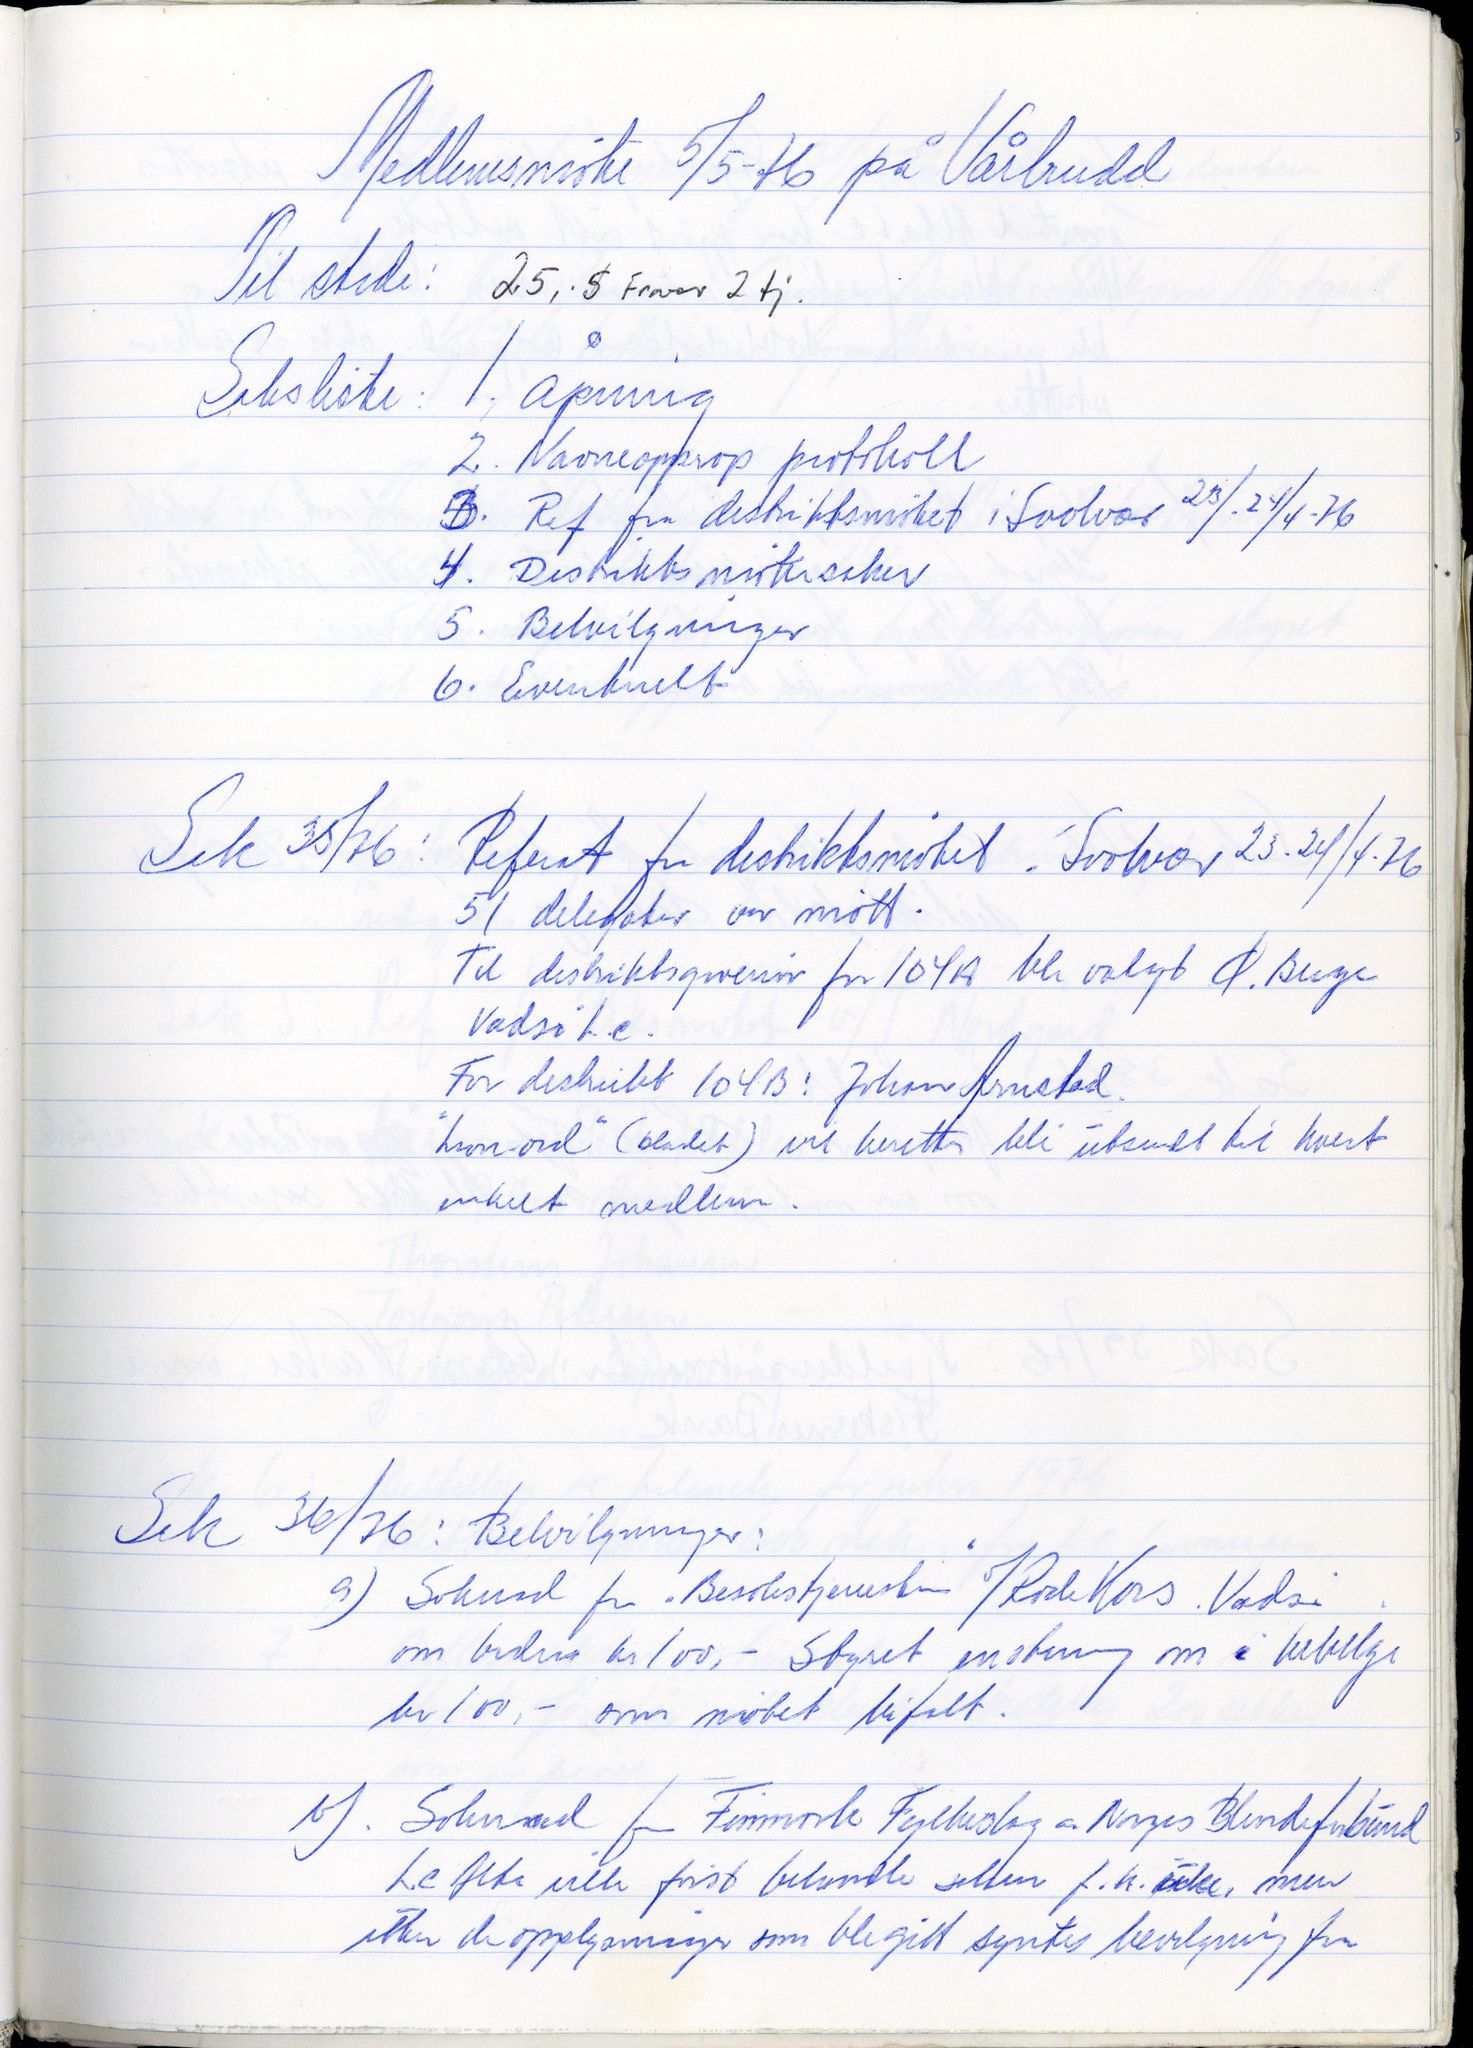 Medlemsmöte 5/5-76 på Vårbrudd
Til stede: 25, . 5 Fravær 2 tj.
Saksliste: 1. Åpning
2. Navneopprop protokoll
3. Ref fra distriktsmötet i Svolvær 23/.24/4-76
4. Distriktsmötesaker
5. Bevilgninger
6. Eventuelt
Sak 35/76: Referat fra distriktsmötet i Svolvær 23-24/4-76
51 delegater var mött.
Til distriktsguvernör for 104A ble valgt O. Berge
Vadsö L.C.
For distrikt 104B: Johan Arnstad.
"Lion-ord" (bladet) vil heretter bli utsendt til hvert
enkelt medlem.
Sak 36/76: Bevilgninger:
a) Söknad fra "Besökstjenesten" v/Röde Kors. Vadsö
om bidrag kr 100,- Styret enstemmig om å bevilge
kr 100,- som mötet bifalt.
b). Söknad fra Finnmark Fylkeslag av Norges Blindeforbund
L.C Alta ville först behandle saken men
etter de opplysninger som ble gitt syntes bevilgning fra